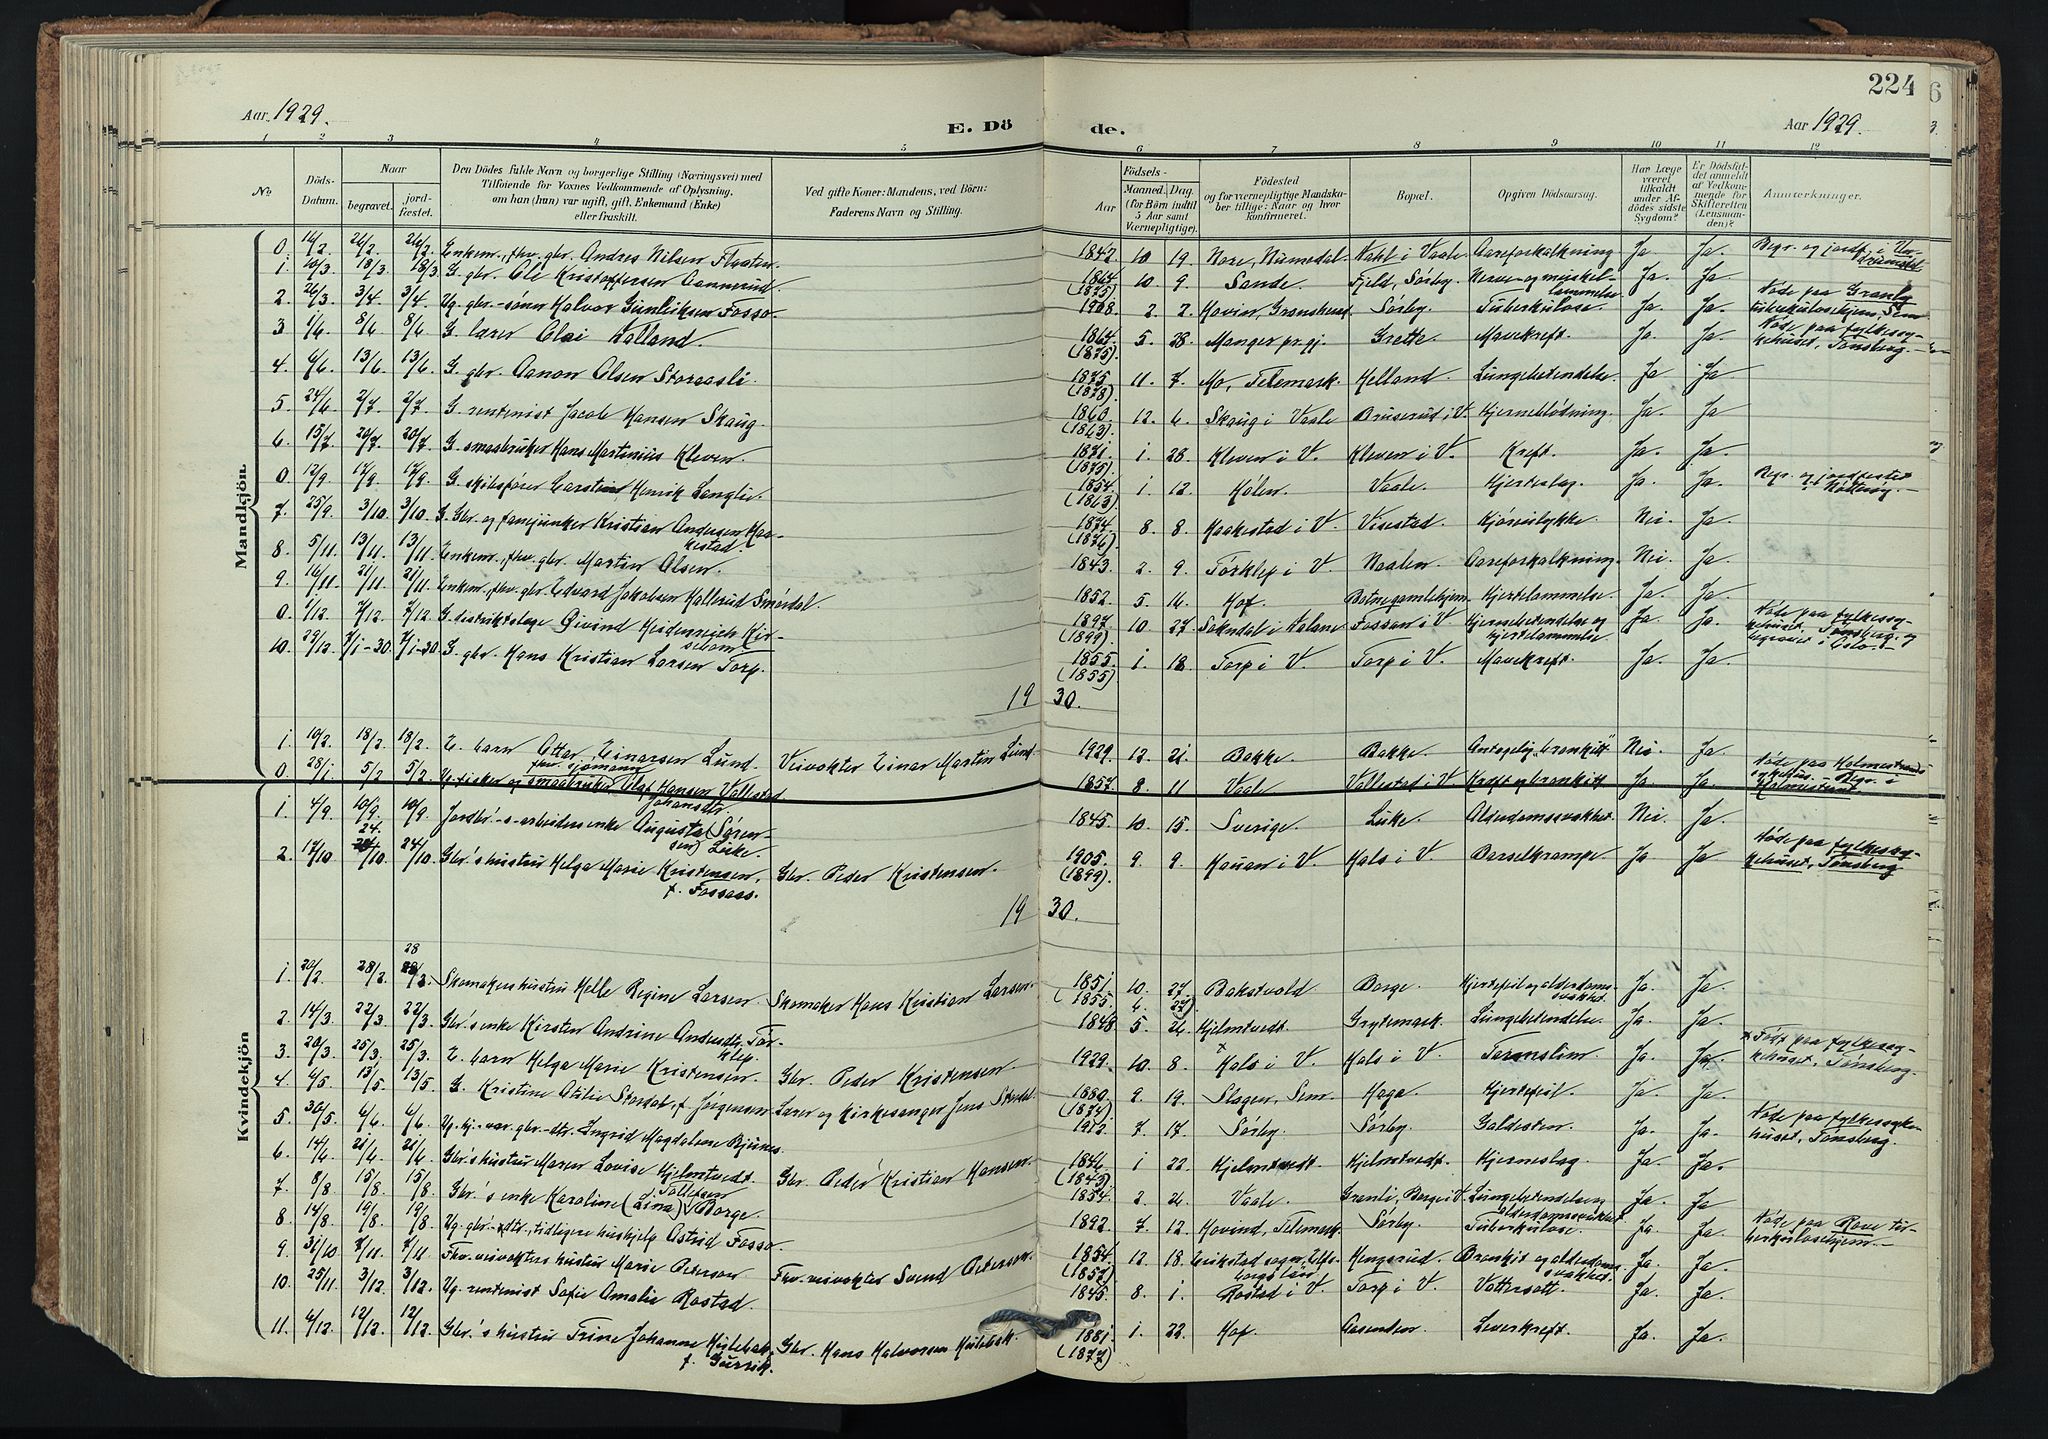 224
Aar 1929.
E. Dö
de.
Aar 1929.
1 2 3 4 5 6 7 8 9 10 11 12
No
Döds-
Datum.
Naar
begravet.
jord-
fæstet.
Den Dödes fulde Navn og borgerlige Stilling (Næringsvei) med
Tilföiende for Voxnes Vedkommende af Oplysning,
om han (hun) var ugift, gift, Enkemand (Enke)
eller fraskilt.
Ved gifte Koner: Mandens, ved Börn:
Faderens Navn og Stilling.
Aar
Födsels-
Maaned. Dag.
(for Börn indtil
5 Aar samt
Værnepligtige).
Födested
og for værnepligtige Mandska-
ber tillige: Naar og hvor
konfirmeret.
Bopæl.
Opgiven Dödsaarsag.
Har Læge
været
tilkaldt
under Af-
dödes sidste
Sygdom?
Er Dödsfal-
det anmeldt
af Vedkom-
mende for
Skifteretten
(Lensman-
den)?
Anmærkninger.
Mandkjön.
0. 16/2 26/2. 26/2. Enkem., fhv. gbr. Andres Nilsen Flaaten. 1842 10 19 Nore, Numedal. i Vaale Aareforkalkning Ja Ja. Begr. og jordf. i
1. 10/3 18/3 18/3. G. gbr. Ole Kristoffersen Aannerud. 1864 (1875) 10 9 Sande. Fjeld, Sørby. Nerve- og muskel-
lammelse Ja. Ja.
2. 26/3. 3/4. 3/4 Ug. gbr.-sønn Halvor Gunleiksen Fosso. 1908 2 2 Hovin, Gransherad Sørby. Tuberkulose. Ja. Ja. Døde paa Granly
tuberkulosehjem, Sem
3 1/6. 8/6 8/6 G. lærer Olai Halland. 1864 (1875). 5. 28. Manger pr.gj. Grette. Mavekreft. Ja. Ja. Døde paa fylkessy-
kehuset, Tønsberg.
4. 4/6. 13/6 13/6 G. gbr. Aanon Olsen Storaasli. 1875 (1878) 11. 7. Mo, Telemark. Helland. Lungebetendelse. Ja Ja
5. 24/6 2/7. 2/7. G. rentenist Jacob Hansen Skaug. 1860 (1863) 12. 6 Skaug i Vaale Bruserud i V. Hjerneblødning. Ja. Ja
6 15/7 20/7. 20/7 G. smaabruker Hans Martinius Kleven. 1871 (1875) 1. 28. Kleven i V. Kleven i V. Kreft. Ja. Ja.
0 12/9 17/9. 17/9. G. skibsfører Carsten Henrik Langlie. 1854 (1863) 1. 12 Hølen. Vaale. Hjerteslag. Ja. Ja. Begr. og jordfestet
i Nøtterøy.
7. 25/9. 3/10. 3/10. G. Gbr. og fanejunker Kristian Andersen Haa-
kestad. 1874 (1876) 8 8 Haakestad i V. Visestad. Kjøreulykke. Nei. Ja.
8. 5/11 13/11. 13/11. Enkem., fhv. gbr. Martin Olsen. 1843. 2. 9. Torklep i V. Naalen. Aareforkalkning. Nei. Ja.
9. 16/11. 21/11 21/11. Enkem., fhv. gbr. Edvard Jakobsen Hallerud Smørdal. 1852. 5 16. Hof. Botne gamlehjem Hjertelammelse. Ja. Ja
0. 1/12 7/12 7/12 G. distriktslæge Øivind Heidenreich Kir-
sebom 1897 (1899) 10 27 Sokndal i Dalane Fossan i V Hjernebetendelse og
hjertelammelse Ja Ja. Døde paa fylkessy-
kehuset, Tønsberg, og
begravet i Oslo.
10. 29/12 7/1-30. 7/1-30. G. gbr. Hans Kristian Larsen Torp. 1855 (1855) 1. 18 Torp i V. Torp i V. Mavekreft. Ja. Ja.
19 30.
1 10/2. 18/2 18/2. E. barn Ottar Einarsen Lund. Veivokter Einar Martin Lund. 1929. 12. 21. Bakke. Bakke. Antagelig "bronkitt" Nei. Ja.
0. 28/1. 5/2 5/2. Ug. fisker og fhv. sjømann smaabruker Olaf Hansen Vallestad. 1857 8. 11 Vaale Vallestad i V. Kreft og bronkitt Ja. Ja. Døde paa Holmestrands
sykehus. - Begr. i
Holmestrand
Kvindekjön
1. 4/9 10/9. 10/9. Jordbr.'s-arbeiders enke Augusta Johansdtr. (Søren-
sen) Løke. 1845. 10. 15. Sverige. Løke. Alderdomssvakhet Nei. Ja.
2. 17/10 24/10 24/10. Gbr.'s hustru Helga Marie Kristensen,
f. Fossaas. Gbr. Peder Kristensen. 1905 (1899). 9. 9. Hauan i V. Hals i V. Barselkrampe. Ja. Ja Døde paa fylkessy-
kehuset, Tønsberg
19 30.
1. 20/2. 28/2. 28/2. Skomakers hustru Helle Regine Larsen. Skomaker Hans Kristian Larsen. 1851 (1855 10. 4. 27 27). Bakstvold Borge. Hjertefeil og alderdoms-
svakhet. Ja. Ja.
2. 14/3. 22/3. 22/3. Gbr.'s enke Kirsten Andrine Andersdtr. Tor-
klep. 1848 5 26 Hjelmtvedt. Grytemark. Lungebetendelse. Ja. Ja
3. 20/3 25/3. 25/3. E. barn Helga Marie Kristensen. Gbr. Peder Kristensen. 1929. 10. 8. x Hals i V. Hals i V. Ja. Ja. x Født paa fylkessy-
kehuset, Tønsberg.
4 4/5 13/5 13/5. G. Kristine Otilie Stordal, f. Jørgensen Lærer og kirkesanger Jens Stordal 1880 (1874) 9. 19. Slagen, Sem. Haga. Hjertefeil. Ja. Ja.
5. 30/5. 6/6 6/6. Ug. hj.-vær. gbr.-dtr. Ingrid Magdalene Bjünes. 7. 17. Sørby. Sørby. Galdesten. Ja. Ja. Døde paa fylkessyke-
huset, Tønsberg.
6. 14/6 21/6. 21/6 Gbr.'s hustru Maren Lovise Hjelmtvedt. Gbr. Peder Kristian Hansen. 1846 (1843) 1 22. Hjelmtvedt. Hjelmtvedt. Hjerneslag. Ja. Ja.
7 8/8 15/8. 15/8. Gbr.'s enke Karoline (Lina) Tollefsen Borge. 1854. 2 26. Vaale. Granli, Borge i V. Lungebetendelse og
alderdomssvakhet Ja. Ja
8. 14/8 19/8 19/8. Ug. gbr.-dtr., tidligere hushjelp Astrid Fosso. 1892. 7. 12. Hovind, Telemark. Sørby. Tuberkulose. Ja. Ja. Døde paa Rove tu-
berkulosehjem.
9. 31/10 7/11. 7/11 Fhv. veivokters hustru Marie Peterson. Fhv. veivokter Svend Peterson. 1854 (1857) 12 18. sogn, Elfs-
borgs län Hengsrud. Bronkit og alderdoms-
svakhet. Ja. Ja.
10. 25/11. 3/12. 3/12. Ug. rentenist Sofie Amalie Rostad. 1845. 8. 1. Rostad i V. Torp i V. Vattersott. Ja. Ja.
11. 4/12. 12/12. 12/12. Gbr.'s hustru Trine Johanne Hislebak,
f. Gurrik. Gbr. Hans Halvorsen Hislebak. 1881 (1877) 1. 22. Hof. Aasenden. Leverkreft. Ja. Ja.